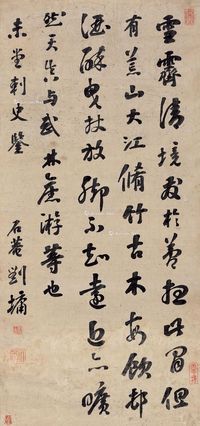 雪霽清境發於夢想此間但
有荒山大江脩竹古木每飲村
酒醉曳杖放腳不知遠近亦曠
然天真與武林舊游等也
未堂刺史鑒
石菴劉墉